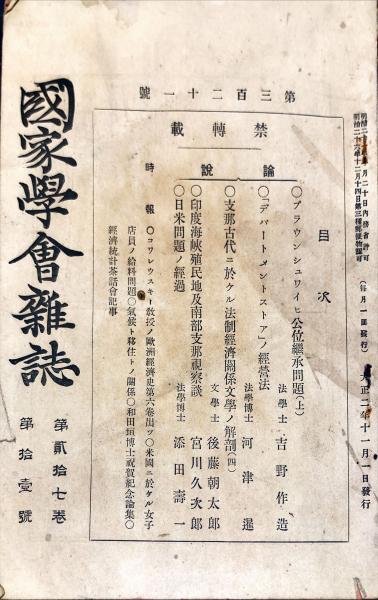 明治二十年三月二十日內務省許可
明治二十六年十二月十四日第三種郵便物認可
(每月一回發行)
大正二年十一月一日發行
第三百二十一號
禁轉載
目次
論說
○ブラウンシュワイヒ公位繼承問題(上)
法學士 吉野作造
○「デパートメントストア」ノ經營法
法學博士 河津暹
○支那古代ニ於ケル法制經濟關係文學ノ解剖(四)
文學士 後藤朝太郎
○印度海峽殖民地及南部支那視察談
宮川久次郎
○日米問題ノ經過
法學博士 添田壽一
時報
○コワレウスキー敎授ノ歐洲經濟史第六卷出ヅ○米國ニ於ケル女子
店員ノ給料問題○氣候ト移住トノ關係○和田垣博士祝賀紀念論集○
經濟統計茶話會記事
國家學會雜誌
第貳拾七卷
第拾壹號